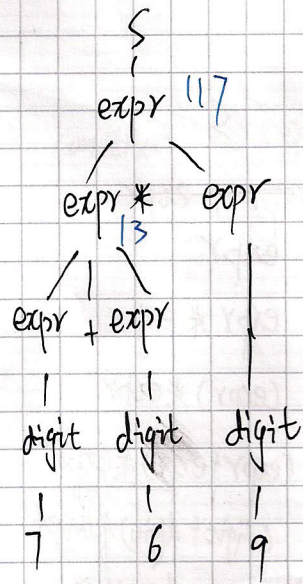 S
expr 117
expr * expr
13
expr + expr
digit digit digit
7 6 9